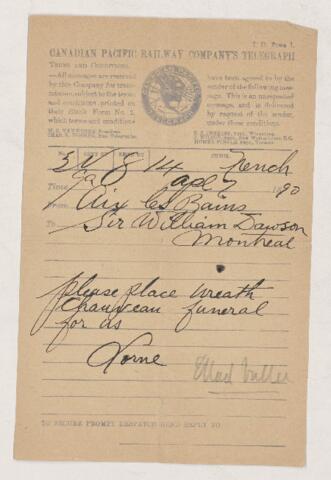 T. D. Form 1.
CANADIAN PACIFIC RAILWAY COMPANY'S TELEGRAPH
TERMS AND CONDITIONS.
—All messages are received by this Company for transmission, subject to the terms and conditions printed on their Blank Form No. 2, which terms and conditions
have been agreed to by the sender of the following message. This is an unrepeated message, and is delivered by request of the sender under these conditions.
No. SENT BY REC'D BY CHECK
14 French
Time Apl 7 1890
From Aix les Bains
To Sir William Dawson
Montreal
please place wreath
Chauveau funeral
for us
Lorne
TO SECURE PROMPT DESPATCH SEND REPLY TO